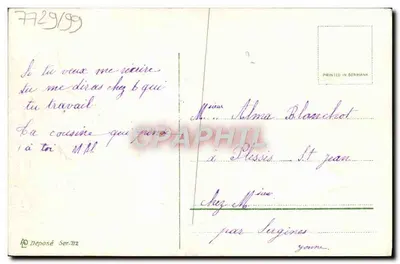 7729/99
Si tu veux me récrire
tu me diras chez qui
tu travail
Ta cousine qui pense
à toi
PRINTED IN GERMANY
M Alma Blanchot
à Plessis St jean
chez M
par Sergines
Yonne
CPAPHIL
Déposé Ser. 781